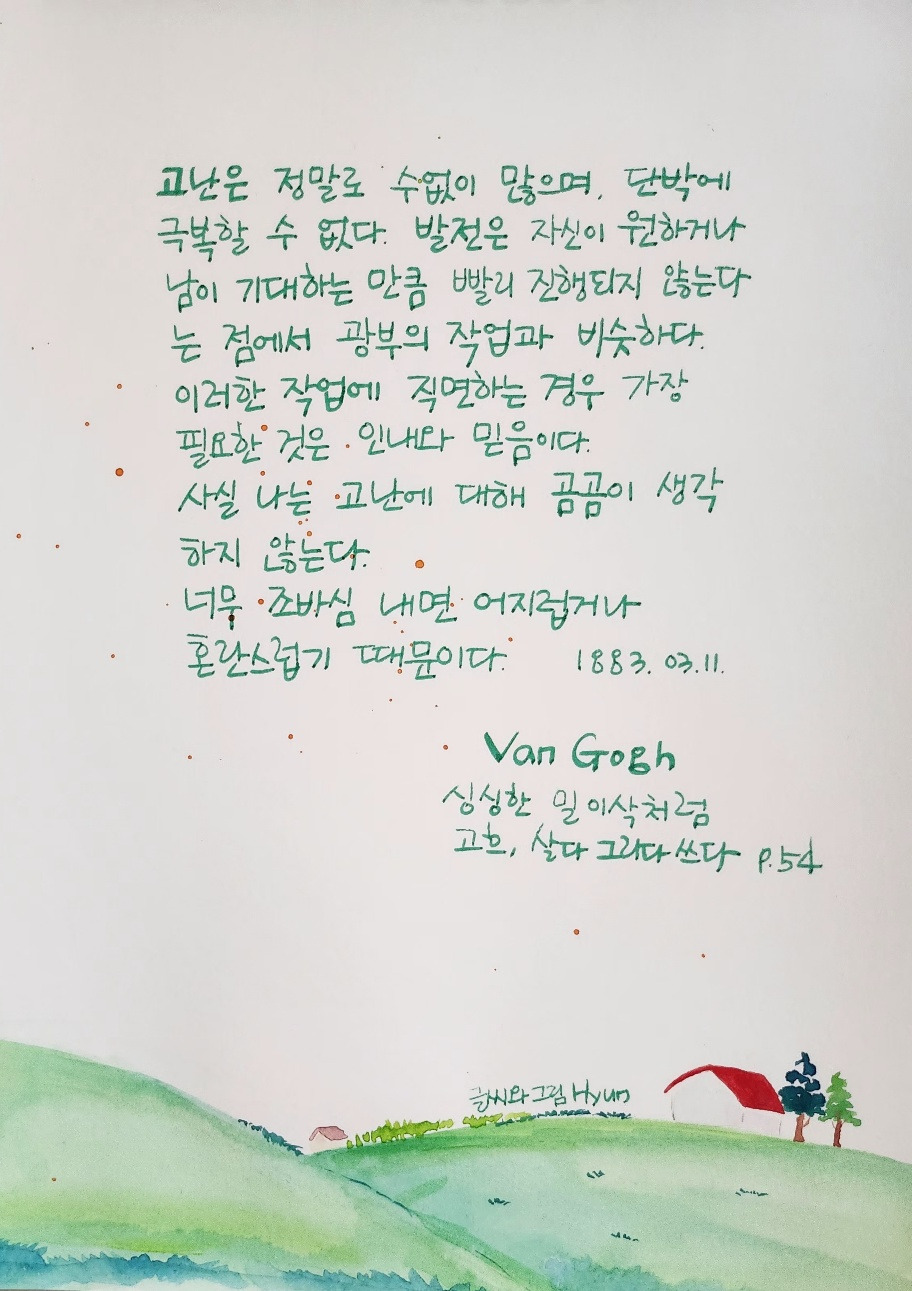 고난은 정말로 수없이 많으며, 단박에
극복할 수 없다. 발전은 자신이 원하거나
남이 기대하는 만큼 빨리 진행되지 않는다
는 점에서 광부의 작업과 비슷하다.
이러한 작업에 직면하는 경우 가장
필요한 것은 인내와 믿음이다.
사실 나는 고난에 대해 곰곰이 생각
하지 않는다.
너무 조바심 내면 어지럽거나
혼란스럽기 때문이다. 1883. 03. 11.
Van Gogh
싱싱한 밀 이삭처럼
고흐, 살다 그리다 쓰다 P.54
글씨와 그림 Hyun